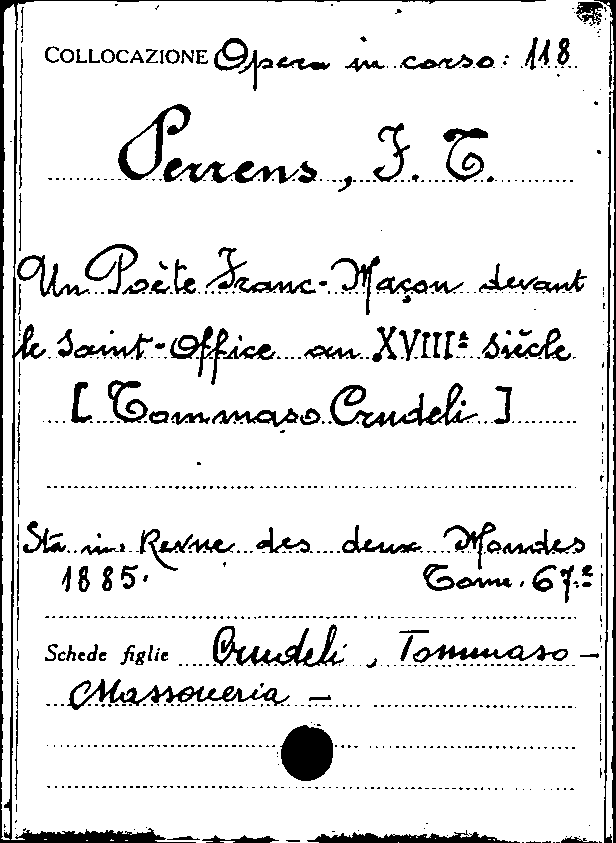 COLLOCAZIONE Opera in corso: 118
Perrens, F. T.
Un Poète Franc-Maçon devant
le Saint-Office au XVIIIe siècle
[Tommaso Crudeli]
Sta in: Revue des deux Mondes
1885. Tom. 67.e
Schede figlie Crudeli, Tommaso -
Massoneria -